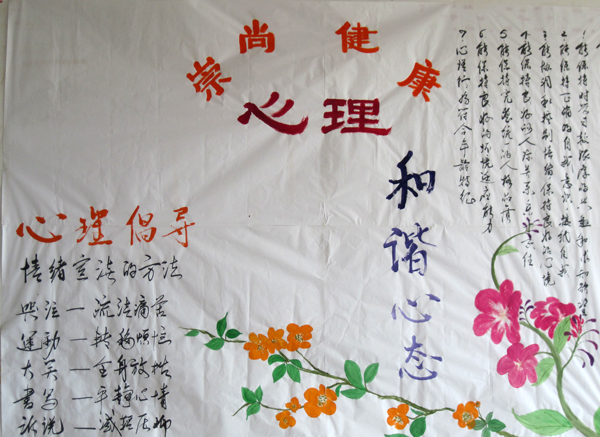 崇尚健康
心理
和谐心态
1能保持对学习较浓厚的兴趣和求知欲望
2能保持正确的自我意识 接纳自我
3能协调和控制情绪保持良好的心境
4能保持良好的人际关系 乐于交往
5能保持完整统一的人格品质
6能保持良好的环境适应能力
7心理行为符合年龄特征
心理倡导
情绪宣泄的方法
哭泣—流洁痛苦
运动—转移烦恼
大笑—全身放松
書写—平静心情
诉说—减轻压抑